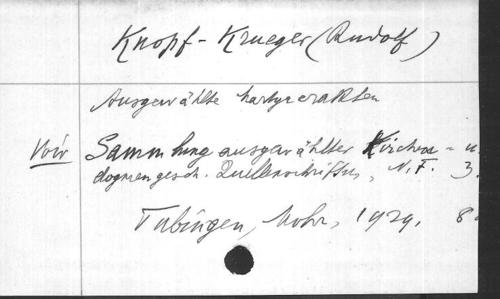 Knopf-Krueger (Rudolf)
Ausgewählte Martyrerakten
Voir Sammlung ausgewählter Kirchen- u.
dogmengesch. Quellenschriften, N.F. 3.
Tubingen, Mohr, 1929. 8